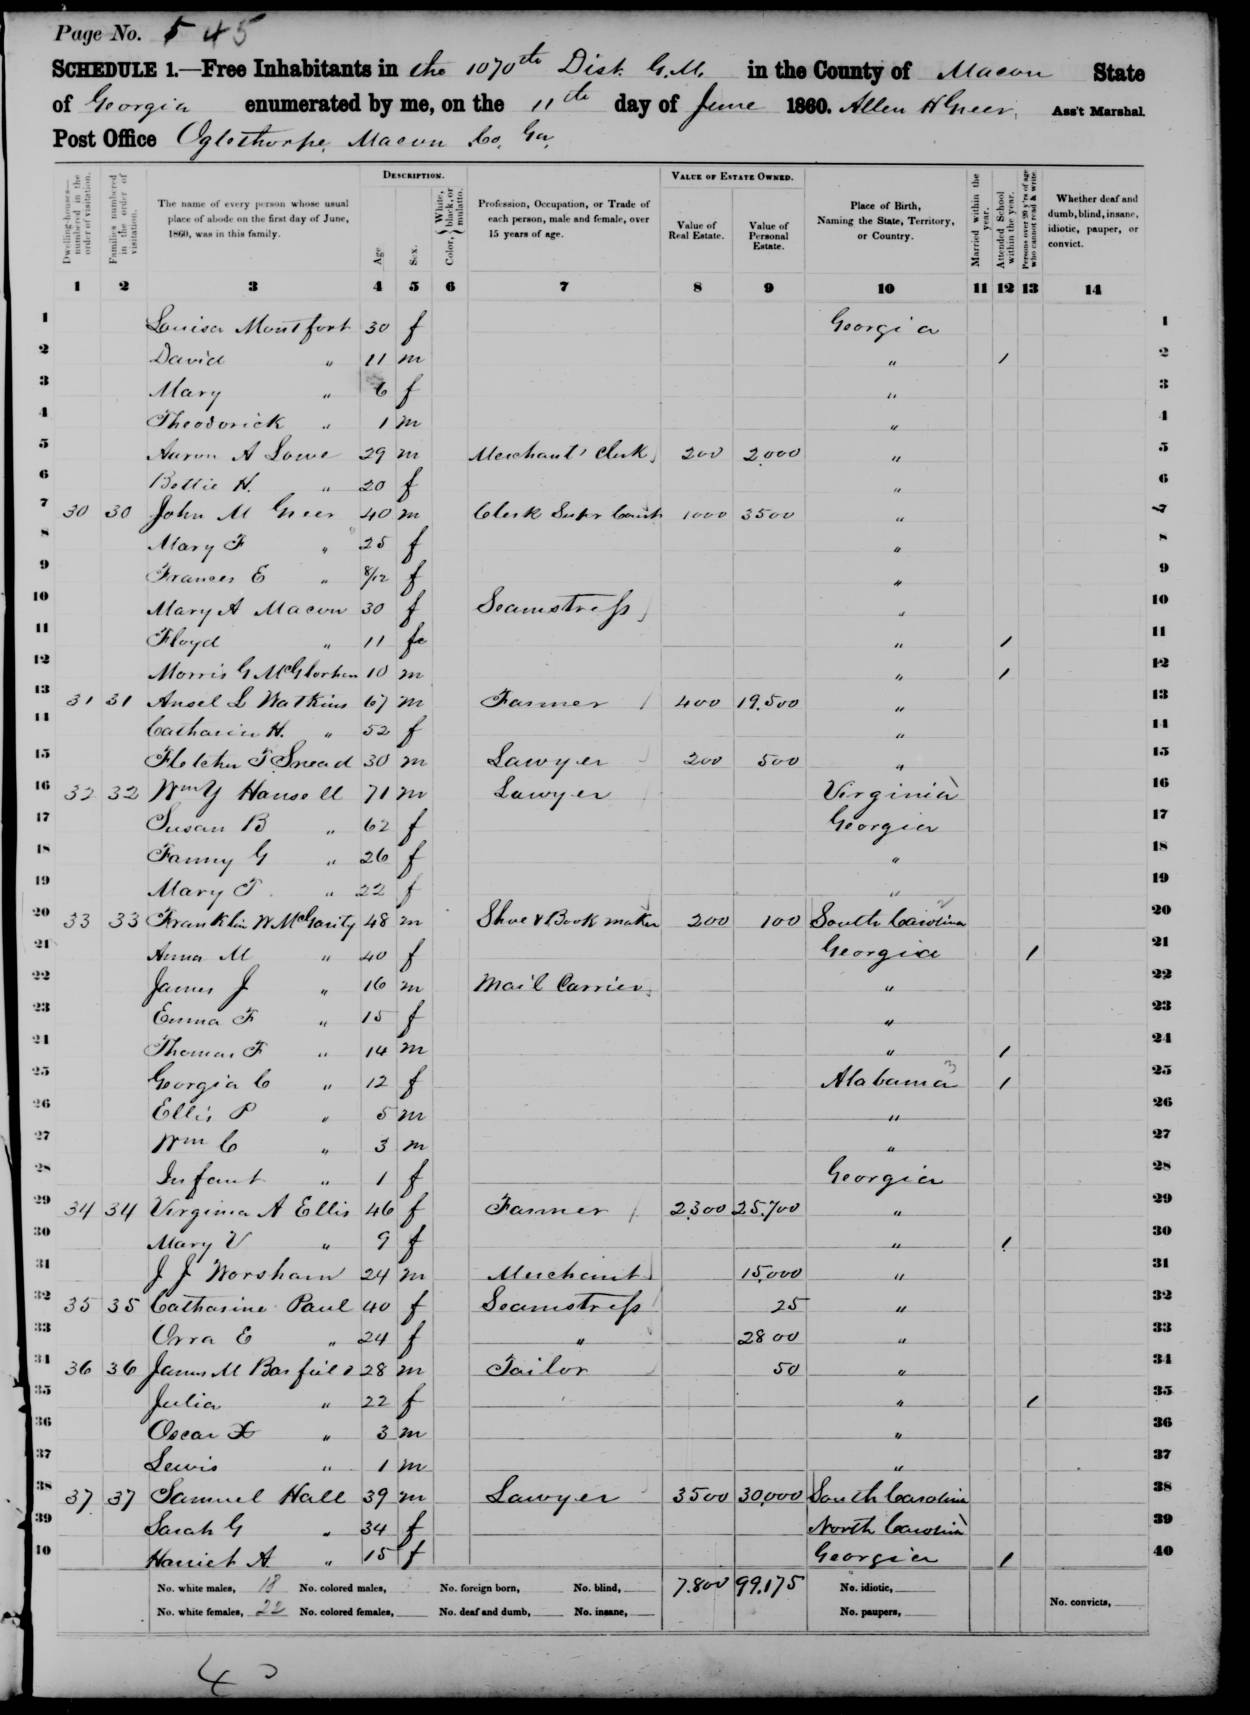 Page No. 5 45
SCHEDULE 1.—Free Inhabitants in the 1070th Dist. G.M. in the County of Macon State
of Georgia enumerated by me, on the 11th day of June 1860. Allen H Greer, Ass't Marshal.
Post Office Oglethorpe, Macon Co, Ga,
Dwelling-houses—numbered in the order of visitation. Families numbered in the order of visitation. The name of every person whose usual place of abode on the first day of June, 1860, was in this family. DESCRIPTION. Age Sex. Color, { White, black, or mulatto. Profession, Occupation, or Trade of each person, male and female, over 15 years of age. VALUE OF ESTATE OWNED. Value of Real Estate. Value of Personal Estate. Place of Birth, Naming the State, Territory, or Country. Married within the year. Attended School within the year. Persons over 20 y'rs of age who cannot read & write. Whether deaf and dumb, blind, insane, idiotic, pauper, or convict.
1 2 3 4 5 6 7 8 9 10 11 12 13 14
1 Louisa Montfort 30 f Georgia 1
2 David " 11 m " / 2
3 Mary " 6 f " 3
4 Theodorick " 1 m " 4
5 Aaron A Lowe 29 m Merchant's Clerk 200 2,000 " 5
6 Bettie H. " 20 f " 6
7 30 30 John M Greer 40 m Clerk Supr Court 1000 3500 " 7
8 Mary F " 25 f " 8
9 Frances E " 8/12 f " 9
10 Mary A Macon 30 f Seamstress " 10
11 Floyd " 11 f " / 11
12 Morris G 10 m " / 12
13 31 31 Ansel L Watkins 67 m Farmer 400 19,500 " 13
14 Catharin H. " 52 f " 14
15 Fletcher T. Snead 30 m Lawyer 200 500 " 15
16 32 32 Wm Y Hansell 71 m Lawyer Virginia 16
17 Susan B " 62 f Georgia 17
18 Fanny G " 26 f " 18
19 Mary T. " 22 f " 19
20 33 33 Franklin W McGarity 48 m Shoe & Book maker 200 100 South Carolina 20
21 Anna M " 40 f Georgia / 21
22 James J " 16 m Mail Carrier " 22
23 Emma F " 15 f " 23
24 Thomas F " 14 m " / 24
25 Georgia C " 12 f Alabama / 25
26 Ellis P " 5 m " 26
27 Wm C " 3 m " 27
28 Infant " 1 f Georgia 28
29 34 34 Virginia A Ellis 46 f Farmer 2300 25,700 " 29
30 Mary V " 9 f " / 30
31 J J Worsham 24 m Merchant 15,000 " 31
32 35 35 Catharine Paul 40 f Seamstress 25 " 32
33 Orra E " 24 f " 2800 " 33
34 36 36 James M Barfield 28 m Tailor 50 " 34
35 Julia " 22 f " / 35
36 Oscar " 3 m " 36
37 Lewis " 1 m " 37
38 37 37 Samuel Hall 39 m Lawyer 3500 30,000 South Carolina 38
39 Sarah G " 34 f North Carolina 39
40 Harriet A. " 15 f Georgia / 40
No. white males, 18 No. colored males, No. foreign born, No. blind, 7,800 99,175 No. idiotic,
No. white females, 22 No. colored females, No. deaf and dumb, No. insane, No. paupers, No. convicts,